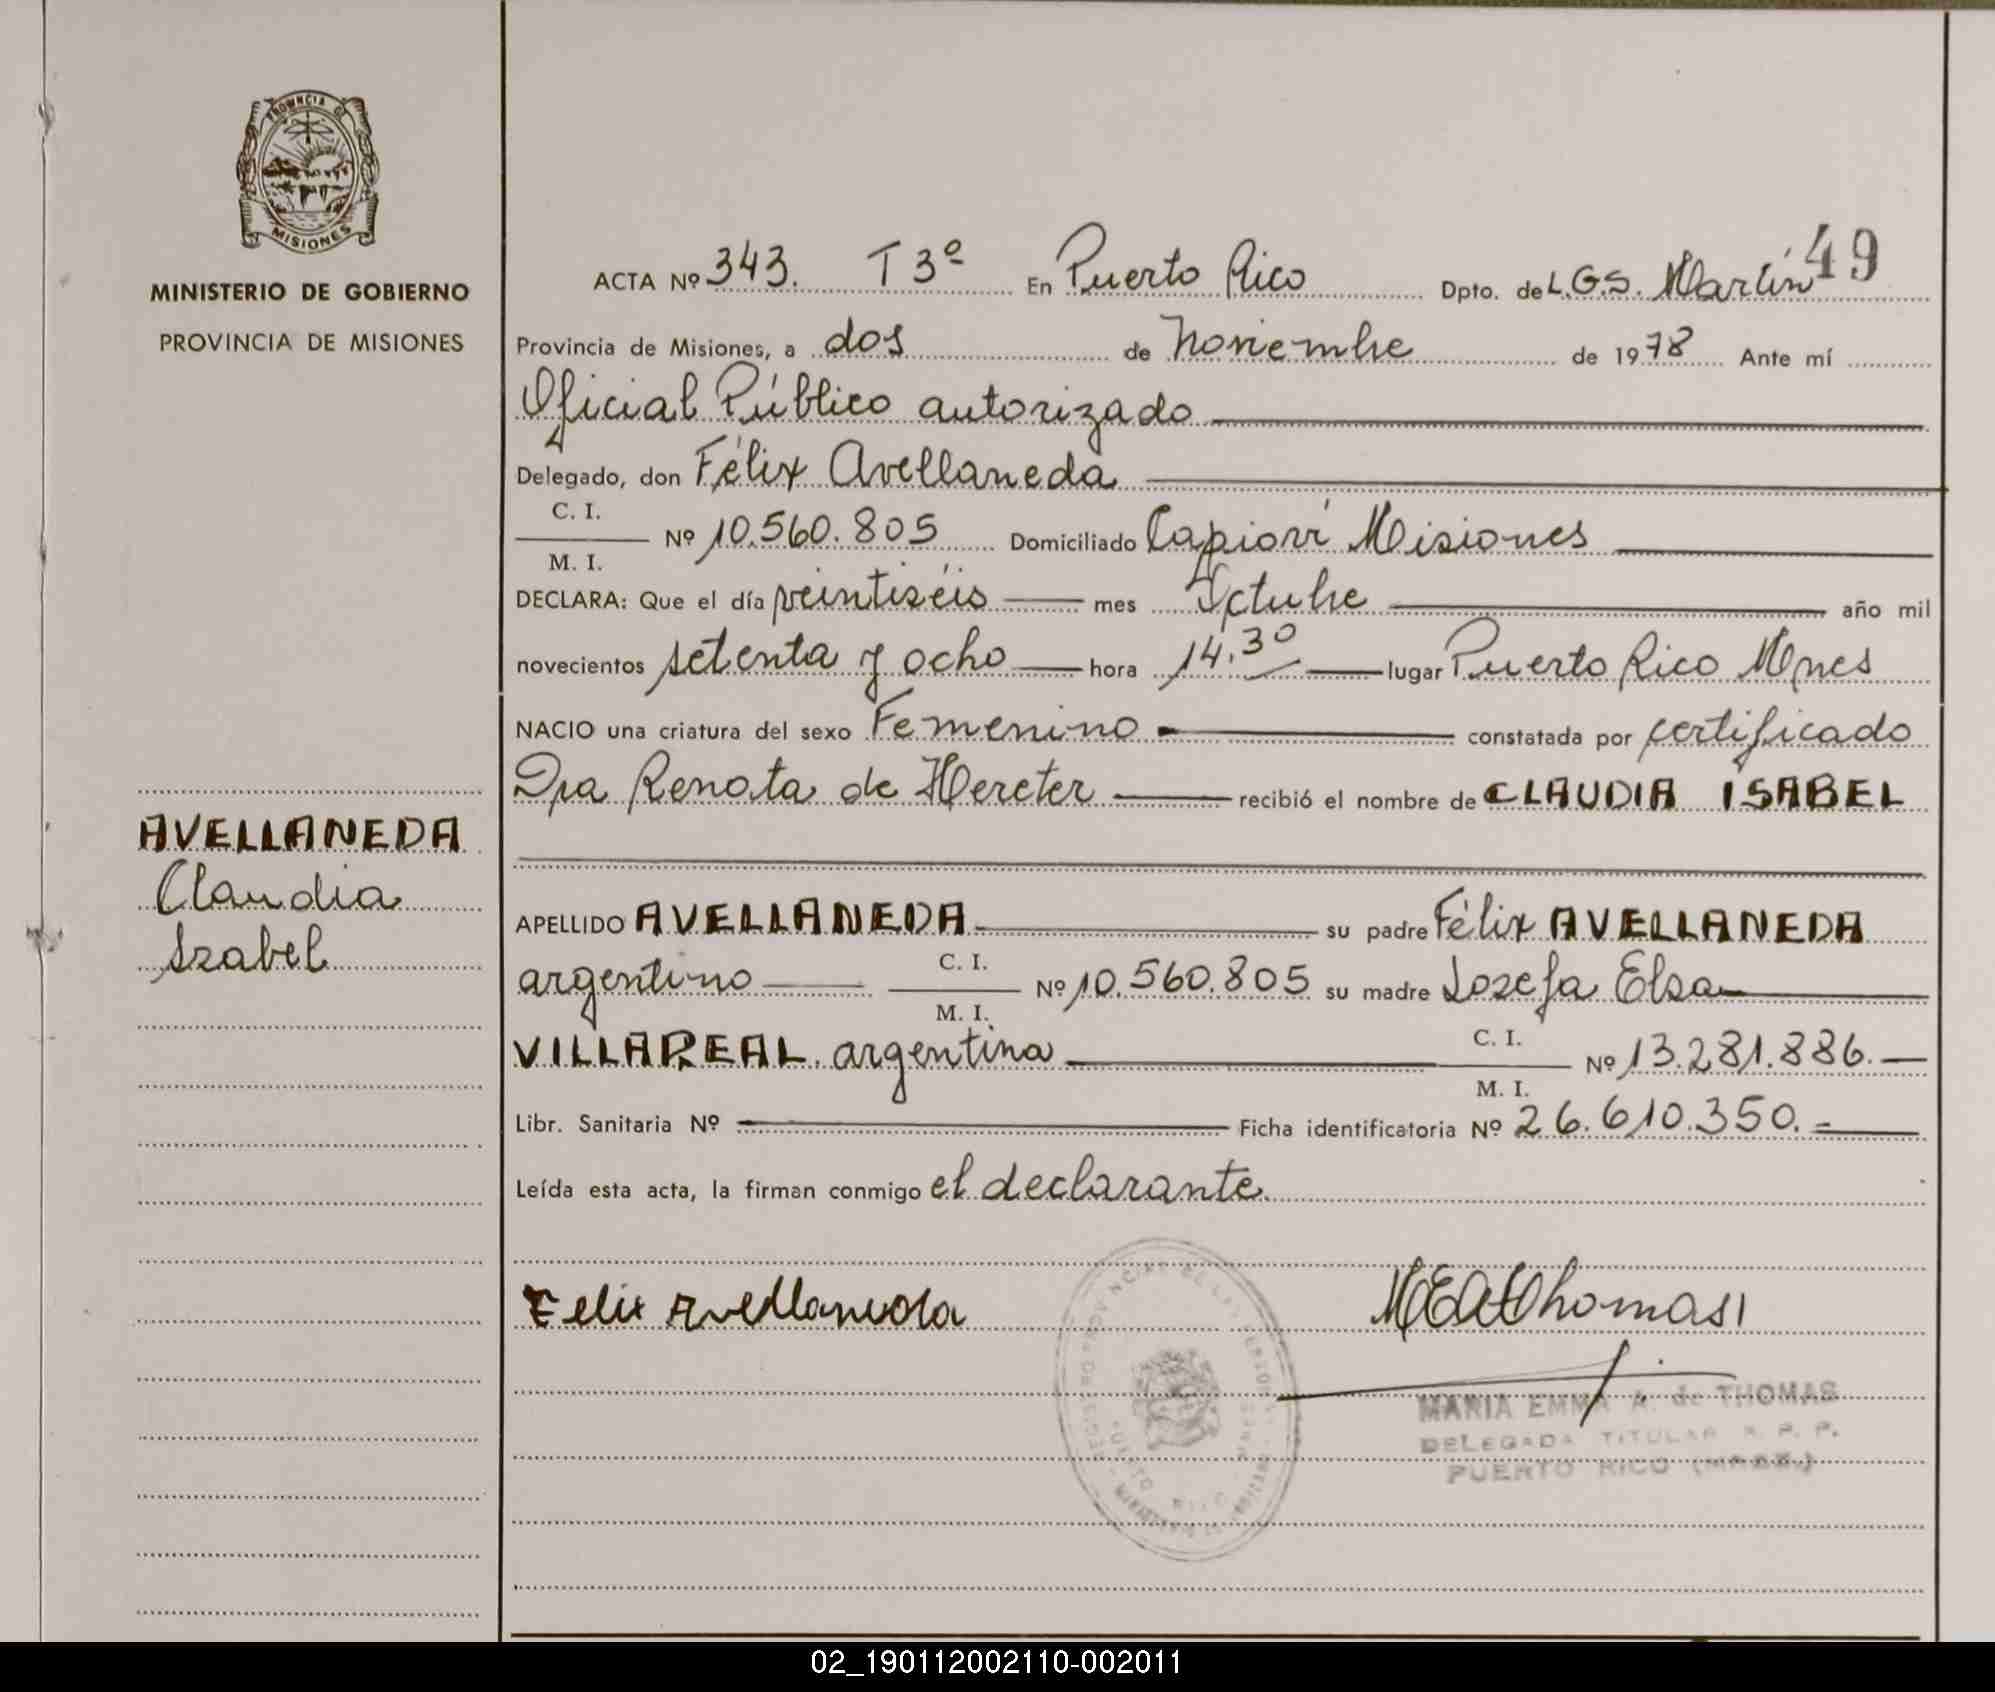 PROVINCIA DE
MISIONES
MINISTERIO DE GOBIERNO
PROVINCIA DE MISIONES
AVELLANEDA
Claudia
Isabel
49
ACTA Nº 343. T 3º En Puerto Rico Dpto. de L.G.S. Martín
Provincia de Misiones, a dos de Noviembre de 1978 Ante mí
Oficial Público autorizado
Delegado, don Félix Avellaneda
C. I.
M. I.
Nº 10.560.805 Domiciliado Capioví Misiones
DECLARA: Que el día veintiséis mes Octubre año mil
novecientos setenta y ocho hora 14.30 lugar Puerto Rico Mnes
NACIO una criatura del sexo Femenino constatada por certificado
Dra Renata de Hercter recibió el nombre de CLAUDIA ISABEL
APELLIDO AVELLANEDA su padre Félix AVELLANEDA
argentino C. I. M. I. Nº 10.560.805 su madre Josefa Elsa
VILLAREAL argentina C. I. M. I. Nº 13.281.886.
Libr. Sanitaria Nº Ficha identificatoria Nº 26.610.350.
Leída esta acta, la firman conmigo el declarante.
Felix Avellaneda
MEAThomas
MARIA EMMA A. de THOMAS
DELEGADA TITULAR R. P. P.
PUERTO RICO (MNES.)
02_190112002110-002011